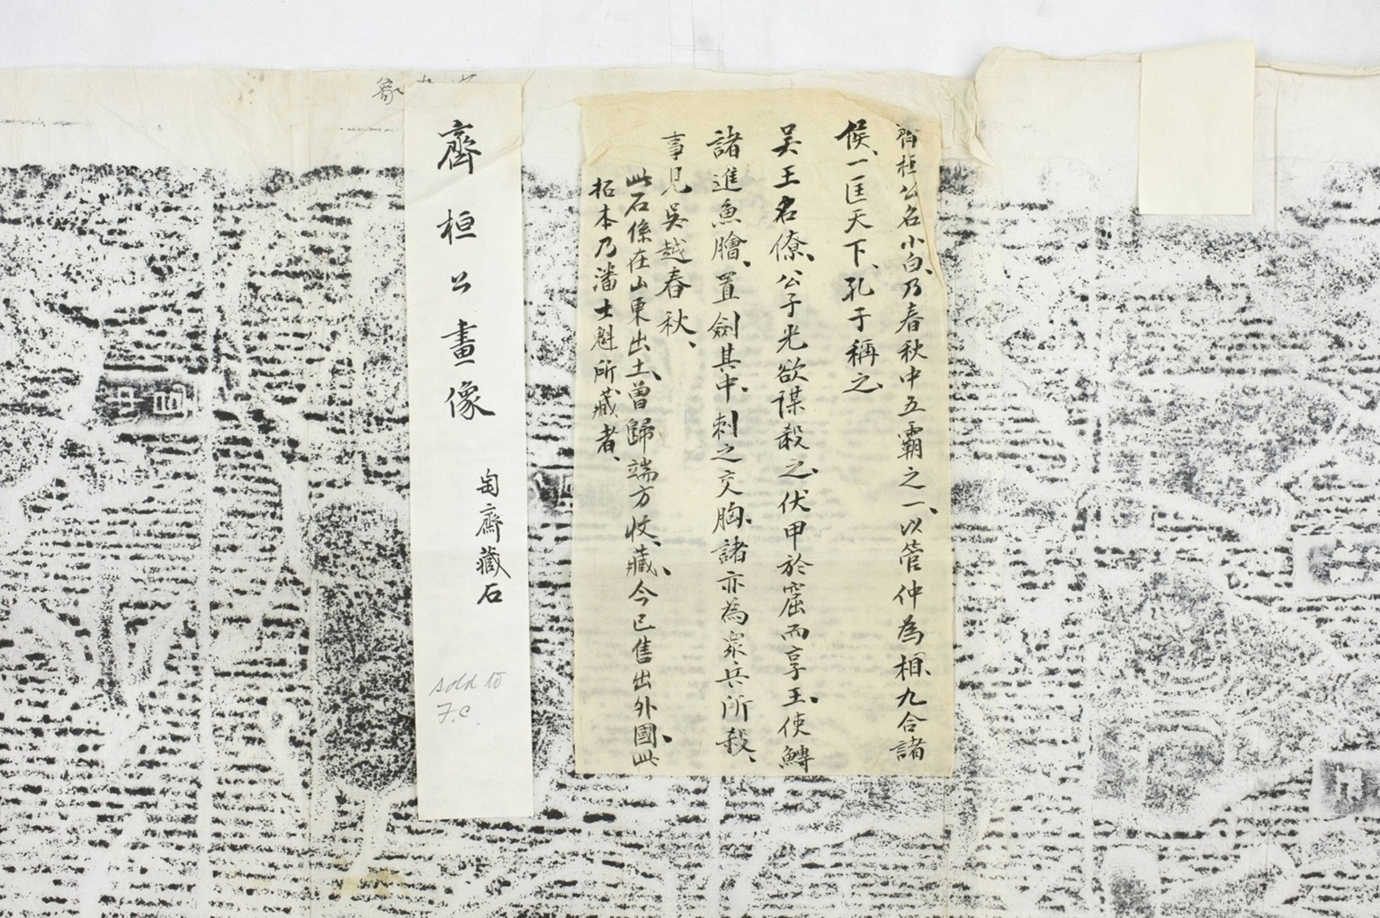 齊桓公名小白、乃春秋中五霸之一、以管仲為相、九合諸
侯、一匡天下、孔子稱之、
吴王名僚、公子光欲謀殺之、伏甲於窟而享王、使鱄
諸進魚膾、置劍其中、刺之交胸、諸亦為衆兵所殺、
事見吳越春秋、
此石係在山東出土、曾歸端方收藏、今已售出外國、此
拓本乃潘士魁所藏者、
齊桓公畫像
匋齋藏石
sold to
F.C.